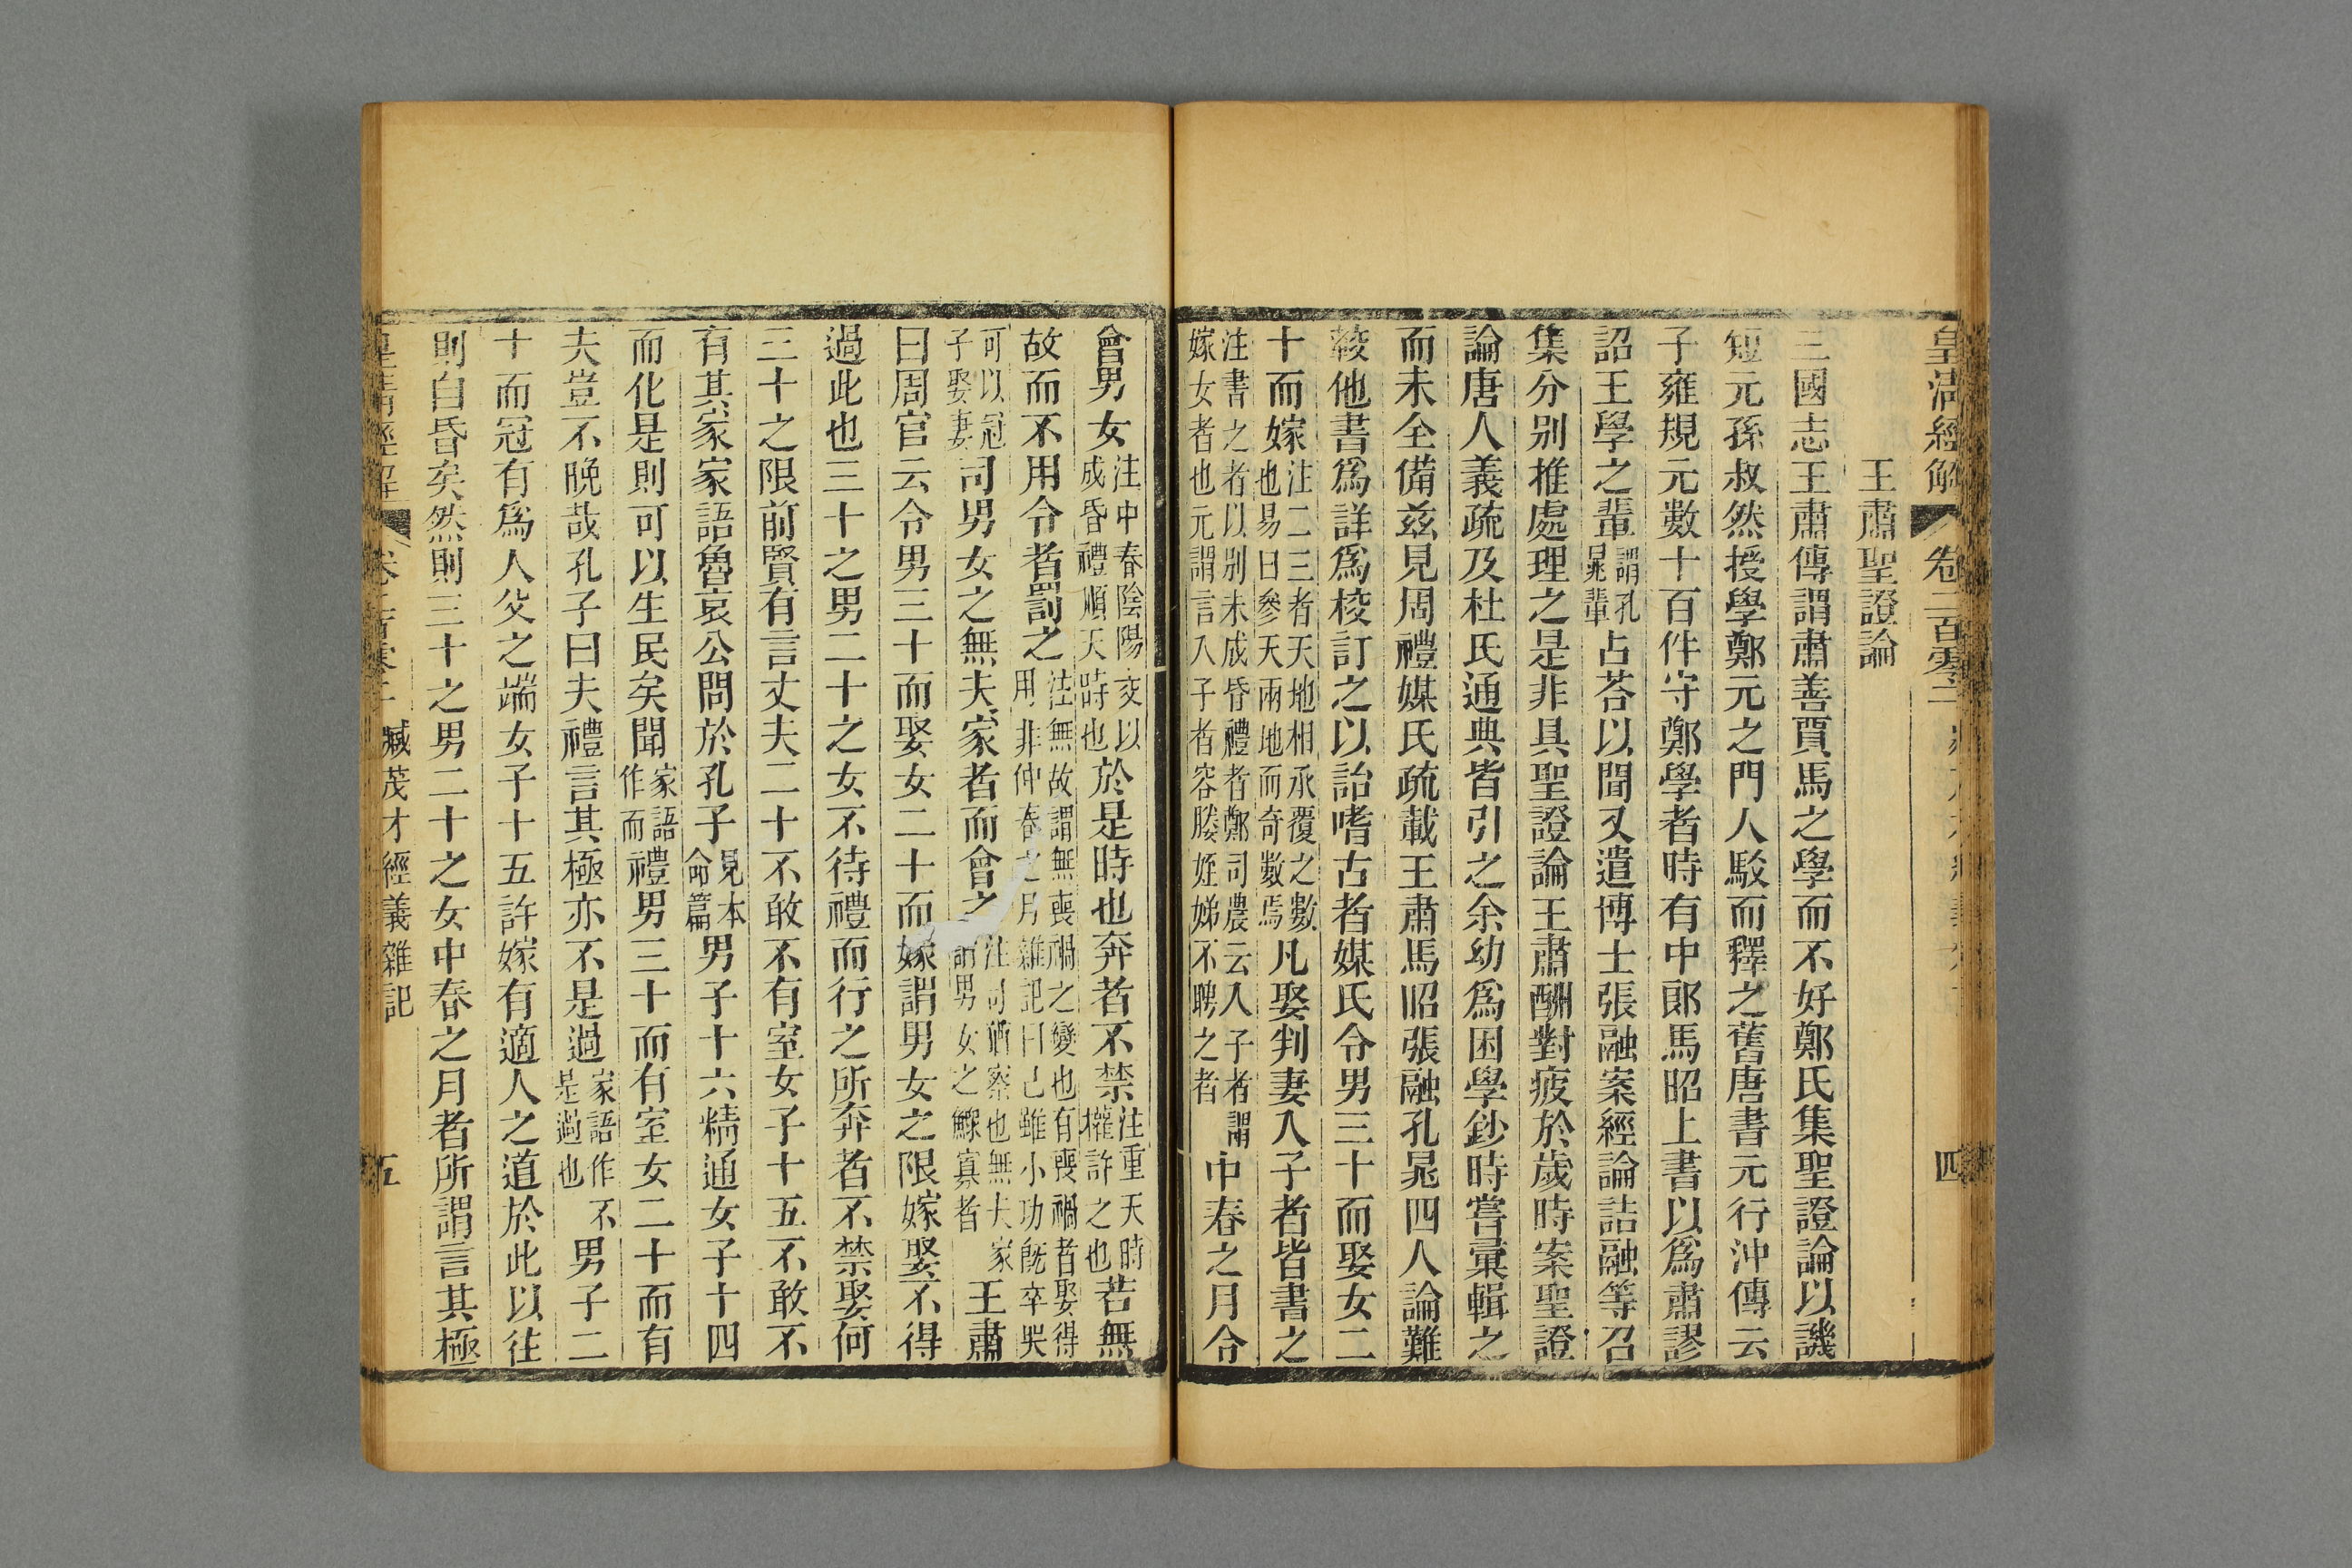 皇清經解 卷二百零二 四
王肅聖證論
三國志王肅傳謂肅善賈馬之學而不好鄭氏集聖證論以譏
短元孫叔然授學鄭元之門人駁而釋之舊唐書元行沖傳云
子雍規元數十百件守鄭學者時有中郎馬昭上書以爲肅謬
詔王學之輩謂孔晁輩占荅以聞又遣博士張融案經論詰融等召
集分別推處理之是非具聖證論王肅酬對疲於歲時案聖證
論唐人義疏及杜氏通典皆引之余幼爲困學鈔時嘗彙輯之
而未全備茲見周禮媒氏疏載王肅馬昭張融孔晁四人論難
較他書爲詳爲校訂之以詒嗜古者媒氏令男三十而娶女二
十而嫁注二三者天地相承覆之數也易曰參天兩地而奇數焉凡娶判妻入子者皆書之
注書之者以別未成昏禮者鄭司農云入子者謂嫁女者也元謂言入子者容媵姪娣不聘之者中春之月令
會男女注中春陰陽交以成昏禮順天時也於是時也奔者不禁注重天時權許之也若無
故而不用令者罰之注無故謂無喪禍之變也有喪禍者娶得用非仲春之月雜記曰己雖小功旣卒哭
可以冠子娶妻司男女之無夫家者而會之注司猶察也無夫家謂男女之鰥寡者王肅
曰周官云令男三十而娶女二十而嫁謂男女之限嫁娶不得
過此也三十之男二十之女不待禮而行之所奔者不禁娶何
三十之限前賢有言丈夫二十不敢不有室女子十五不敢不
有其家家語魯哀公問於孔子見本命篇男子十六精通女子十四
而化是則可以生民矣聞家語作而禮男三十而有室女二十而有
夫豈不晚哉孔子曰夫禮言其極亦不是過家語作不是過也男子二
十而冠有爲人父之端女子十五許嫁有適人之道於此以往
則自昏矣然則三十之男二十之女中春之月者所謂言其極
皇清經解 卷二百零二 臧茂才經義雜記 五